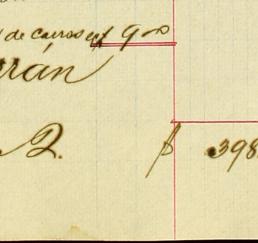 de carros 9 00
rán
2. $ 398